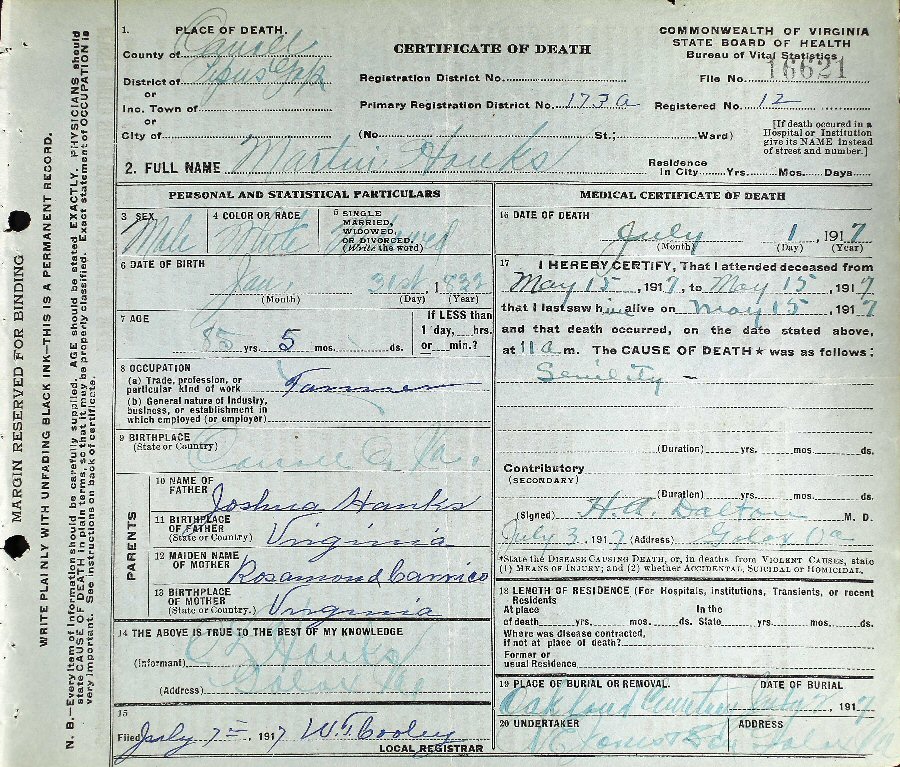 MARGIN RESERVED FOR BINDING
WRITE PLAINLY WITH UNFADING BLACK INK—THIS IS A PERMANENT RECORD.
N. B.—Every item of information should be carefully supplied. AGE should be stated EXACTLY. PHYSICIANS should
state CAUSE OF DEATH in plain terms, so that it may be properly classified. Exact statement of OCCUPATION is
very important. See instructions on back of certificate.
1. PLACE OF DEATH.
County of Carroll
District of
or
Inc. Town of
or
City of
CERTIFICATE OF DEATH
Registration District No.
Primary Registration District No. 173a
(No. St.; Ward)
COMMONWEALTH OF VIRGINIA
STATE BOARD OF HEALTH
Bureau of Vital Statistics
File No. 16621
Registered No. 12
[If death occured in a
Hospital or Institution
give its NAME instead
of street and number.]
2. FULL NAME Martin Hanks
Residence
In City Yrs. Mos. Days
PERSONAL AND STATISTICAL PARTICULARS
3 SEX
Male
4 COLOR OR RACE
White
5 SINGLE
MARRIED,
WIDOWED,
OR DIVORCED.
(Write the word)
Widowed
6 DATE OF BIRTH
Jan. 31st, 1832
(Month) (Day) (Year)
7 AGE
85 yrs. 5 mos. ds.
If LESS than
1 day, hrs.
or min.?
8 OCCUPATION
(a) Trade, profession, or
particular kind of work
(b) General nature of Industry,
business, or establishment in
which employed (or employer)
9 BIRTHPLACE
(State or Country)
Carroll Co Va.
PARENTS
10 NAME OF
FATHER
Joshua Hanks
11 BIRTHPLACE
OF FATHER
(State or Country.)
Virginia
12 MAIDEN NAME
OF MOTHER
Rosamond Carrico
13 BIRTHPLACE
OF MOTHER
(State or Country.)
Virginia
14 THE ABOVE IS TRUE TO THE BEST OF MY KNOWLEDGE
(Informant) Hanks
(Address) Galax Va
15
Filed July 7 1917 W.T. Cooley
LOCAL REGISTRAR
MEDICAL CERTIFICATE OF DEATH
16 DATE OF DEATH
July 1, 1917
(Month) (Day) (Year)
17 I HEREBY CERTIFY, That I attended deceased from
May 15, 1917, to May 15, 1917
that I last saw him alive on May 15, 1917
and that death occurred, on the date stated above,
at 11 a m. The CAUSE OF DEATH★ was as follows:
Senility –
(Duration) yrs. mos. ds.
Contributory
(SECONDARY)
(Duration) yrs. mos. ds.
(Signed) H.A. Dalton M. D.
July 3, 1917 (Address) Galax Va
*State the DISEASE CAUSING DEATH, or, in deaths from VIOLENT CAUSES, state
(1) MEANS OF INJURY; and (2) whether ACCIDENTAL, SUICIDAL or HOMICIDAL.
18 LENGTH OF RESIDENCE (For Hospitals, institutions, Transients, or recent
Residents
At place In the
of death yrs. mos. ds. State yrs. mos. ds.
Where was disease contracted,
if not at place of death?
Former or
usual Residence
19 PLACE OF BURIAL OR REMOVAL. DATE OF BURIAL
Cemetery July 1917
20 UNDERTAKER ADDRESS
Va